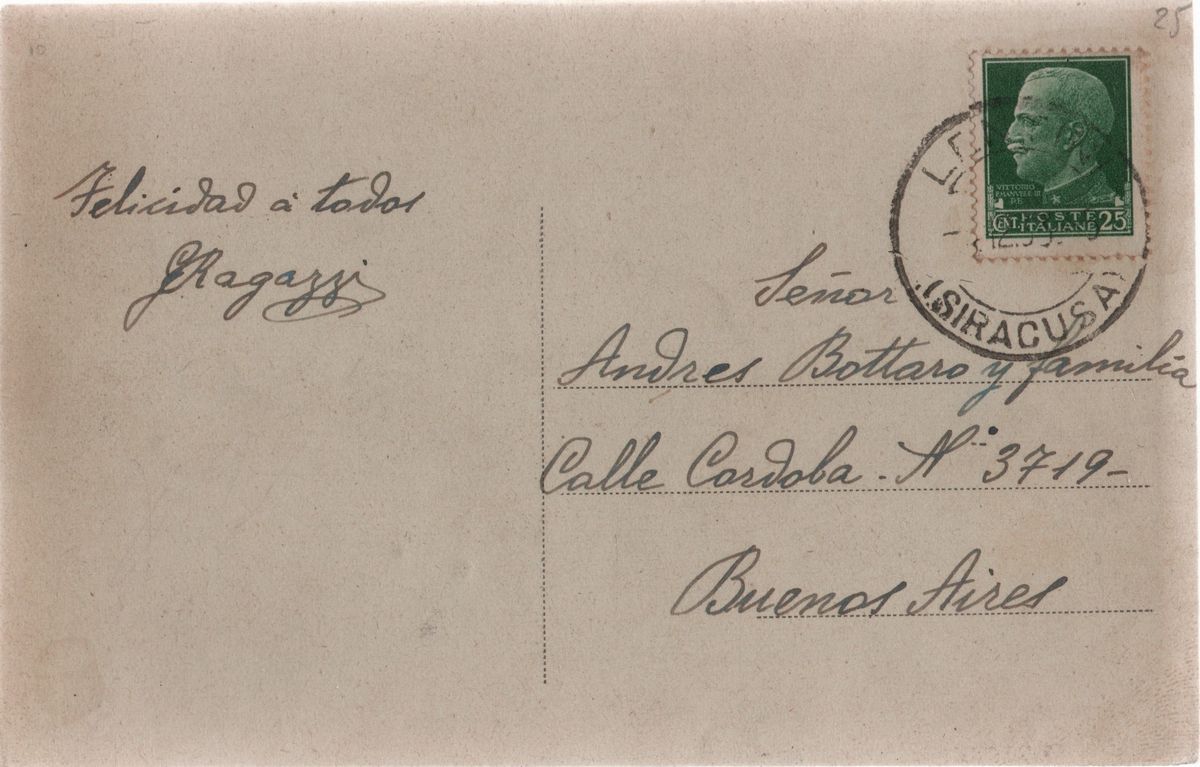 25
Felicidad á todos
GRagazzi
VITTORIO
EMANVELE III
RE
POSTE
CENT. ITALIANE 25
(SIRACUSA)
Señor
Andres Bottaro y familia
Calle Cordoba - Nº 3719-
Buenos Aires